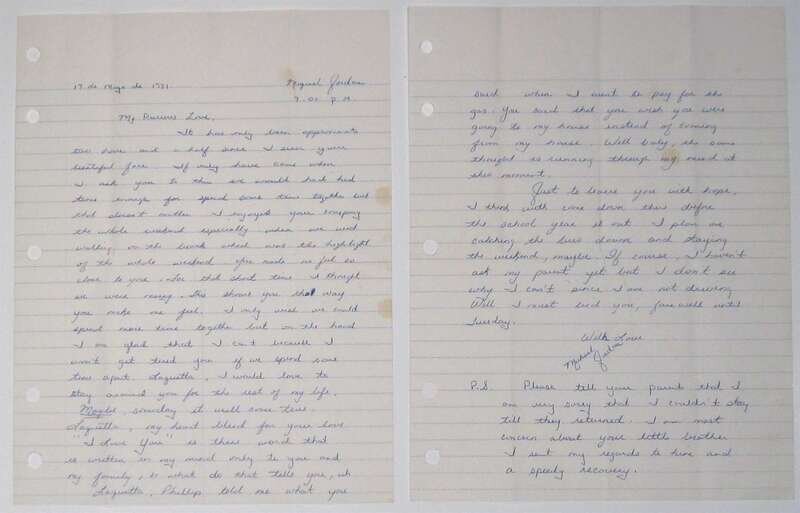 17 de Mayo de 1981
Miguel Jordan
9:01 P.M.
My Precious Love,
It has only been approximate
two hours and a half since I seen your
beautiful face. If only have come when
I ask you to this we would had had
time enough for spend some time together but
that doesn't matter. I enjoyed your company
the whole weekend especially when we went
walking on the beach which was the highlight
of the whole weekend. You made me feel so
close to you. For that short time I thought
we were
you make me feel. I only wish we could
spend more time together but on the hand
I am glad that I can't because I
won't get tired you if we spend some
time apart. Laquetta, I would love to
stay around you for the rest of my life.
Maybe, someday it will come true.
Laquetta, my heart bleed for your love
"I Love You" is three word that
is written in my mind only to you and
my family, so what do that tells you, uh
Laquetta, Phillip told me what you
said when I went to pay for the
gas. You said that you wish you were
going to my house instead of coming
from my house. Well baby, the same
thought is running through my mind at
this moment.
Just to leave you with hope,
I think will come down there before
the school year is out. I plan on
catching the bus down and staying
the weekend, maybe. If course, I haven't
ask my parent yet but I don't see
why I can't since I am not driving
Well I must bid you, fare well until
Tuesday.
With Love
Michael Jordan
P.S. Please tell your parent that I
am very sorry that I couldn't stay
till they returned. I am most
concern about your little brother
I sent my regards to him and
a speedy recovery.